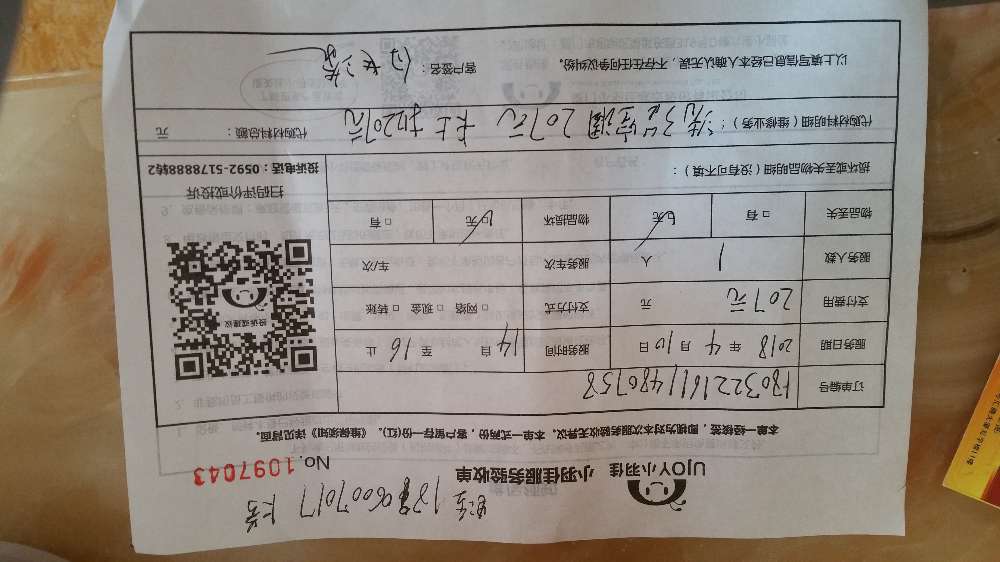 UJOY小羽佳 小羽佳服务验收单 No.1097043
本单一经签签,即视为对本次服务验收无异议。本单一式两份,客户留存留一份(红)。《维保须知》详见背面。
订单编号
服务日期 2018 年 4 月 10 日 服务时间 14 自 至 16 止
支付费用 207元 元 支付方式 □ 网络 □ 现金 □ 转账
服务人数 1 人 服务车次 车/次
物品丢失 □ 有 无 物品损坏 □ 有 无
投诉或建议
扫码评价或投诉
投诉电话:0592-5178888转2
损坏或丢失物品明细(没有可不填):
代购材料明细(维修业务): 空调 207元 卡上扣207元 代购材料总额: 元
以上填写信息已经本人确认无误,不存在任何争议纠纷。 客户签名: